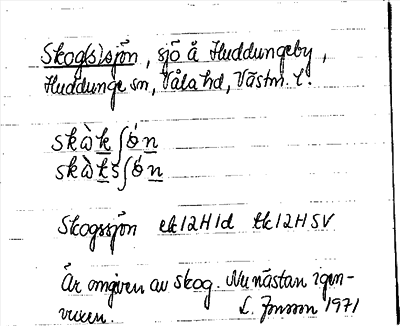 Skog(s)sjön, sjö å Huddungeby,
Huddunge sn, Våla hd, Västm. l.
skὼk∫ö́n
skὼks∫ö́n
Skogssjön ek 12H1d tk 12H SV
Är omgiven av skog. Nu nästan igen-
vuxen. L. Jonson 1971